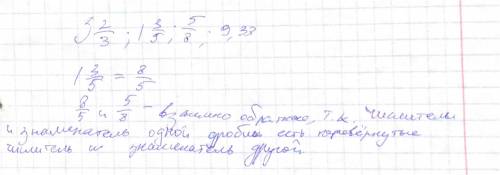 3 2/3 ; 1 3/5 ; 5/8 ; 9,33
1 3/5 = 8/5
8/5 и 5/8 - взаимно обратные, т.к. числитель
и знаменатель одной дроби есть перевёрнутые
числитель и знаменатель другой.